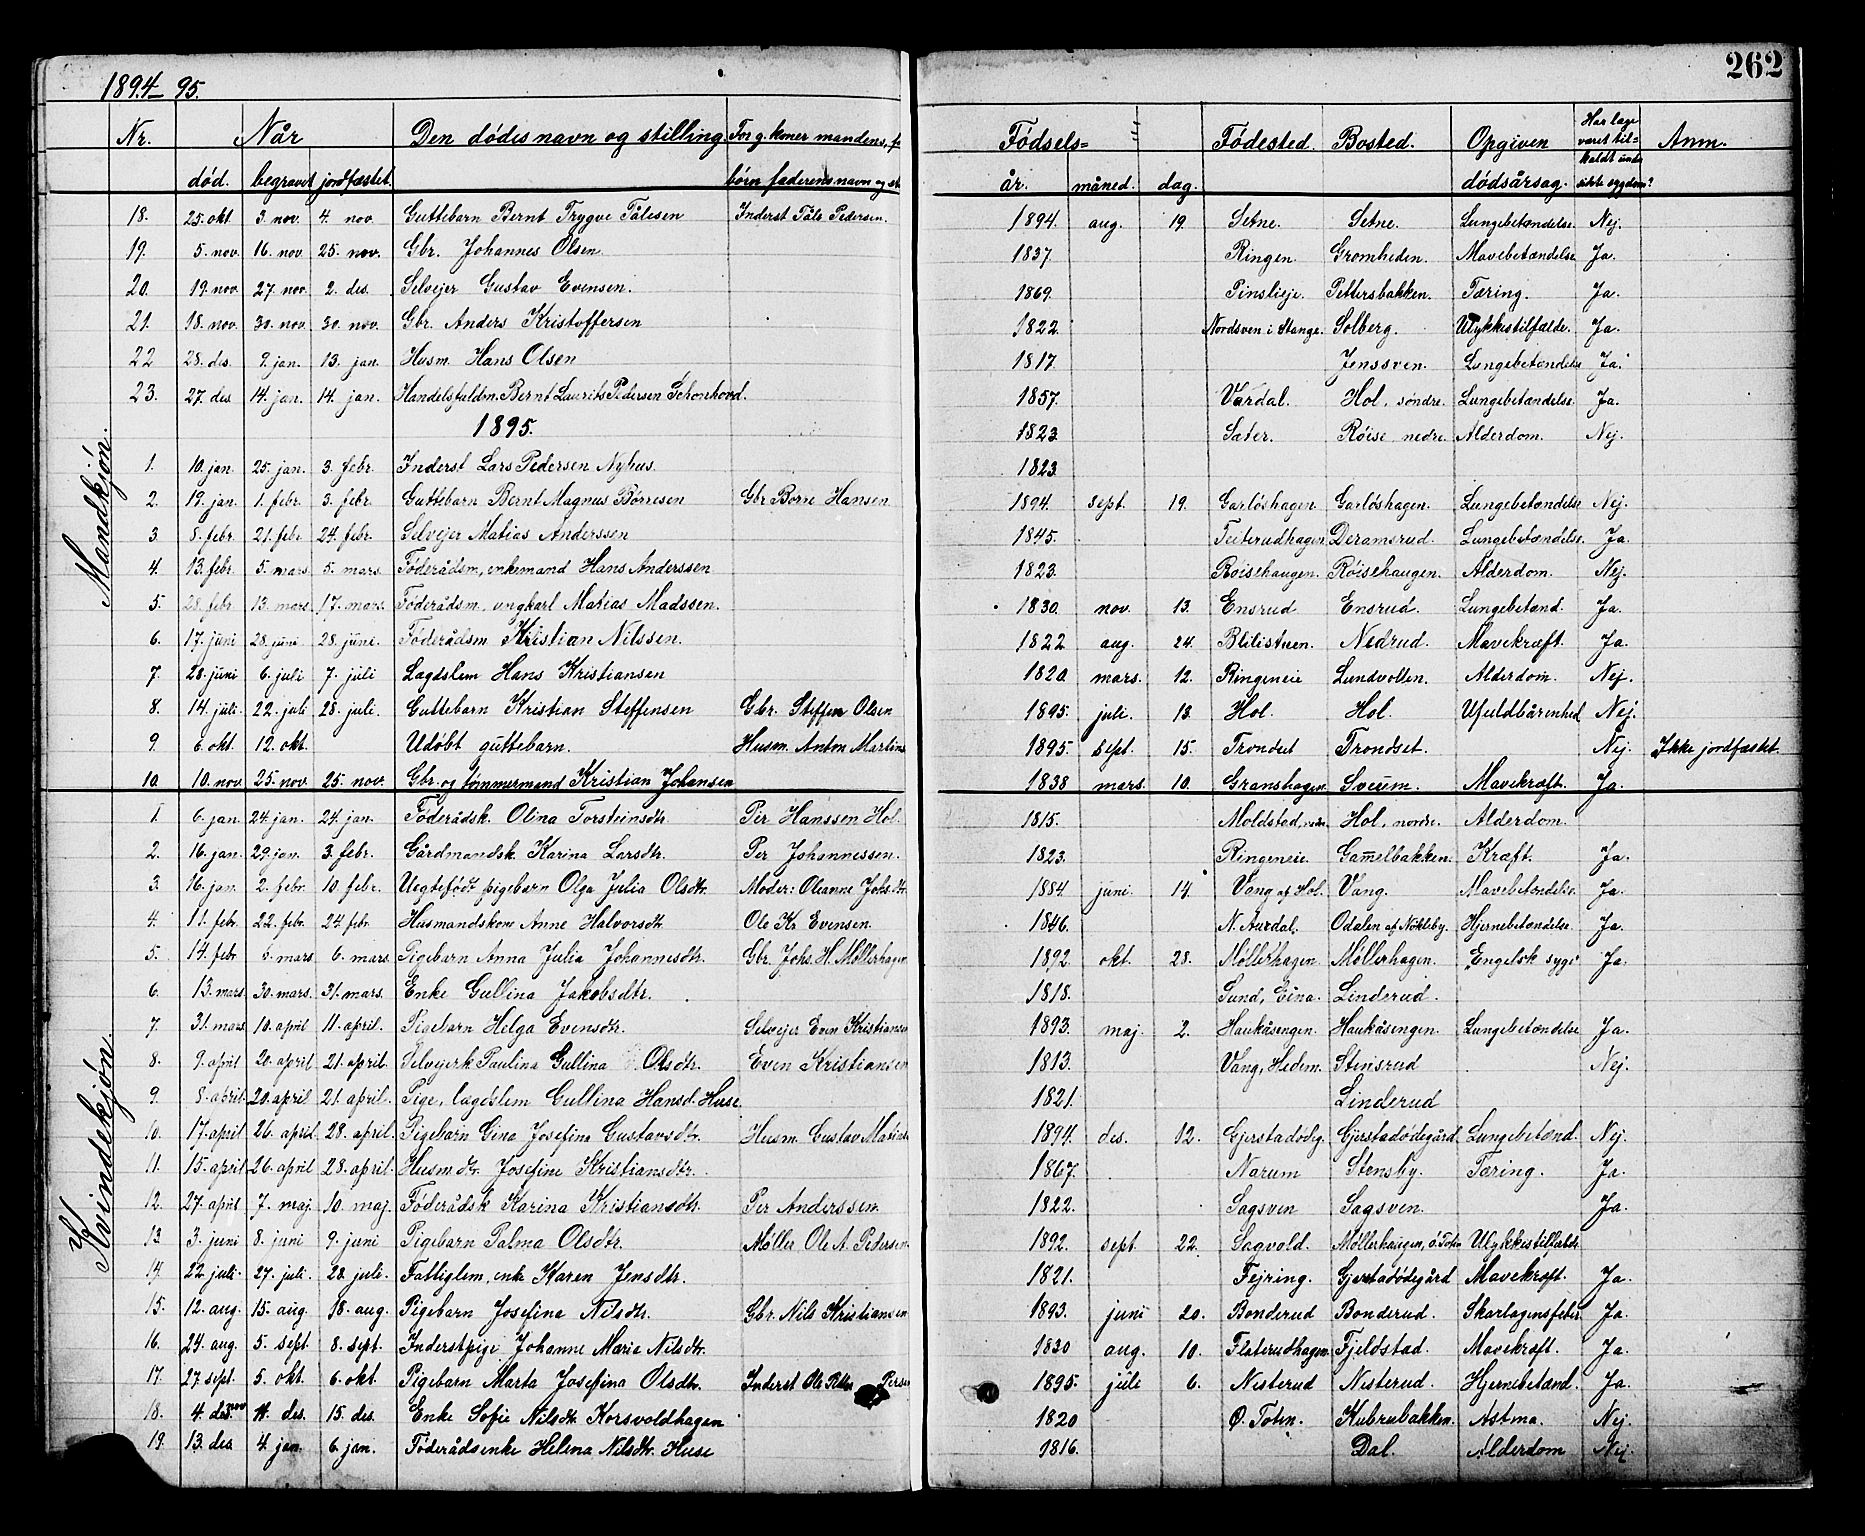 262
1894_ 95.
Nr. Når Den dødes navn og stilling. For g. koner mandens, f Fødsels= Fødested. Bosted. Opgiven Har læge været til= kaldt under Anm.
død. begravet jordfæstet. børn faderens navn og st. år. måned. dag. dødsårsag. sidste sygdom?
Mandkjøn.
18. 25. okt. 3. nov. 4. nov. Guttebarn Bernt Trygve Tålesen Inderst Tåle Pedersen. 1894. aug. 19. Setne. Setne. Lungebetændelse. Nej.
19. 5. nov. 16. nov. 25. nov. Gbr. Johannes Olsen. 1837. Ringen. Gromheden. Mavebetændelse Ja.
20. 19. nov. 27. nov. 2. des. Selvejer Gustav Evensen. 1869. Pinslieje. Pettersbakken. Tæring. Ja.
21. 18. nov. 30. nov. 30. nov. Gbr. Anders Kristoffersen 1822. Nordsven i Stange. Solberg. Ulykkestilfælde. Ja.
22 28. des. 9. jan. 13. jan. Husm. Hans Olsen 1817. Jenssven. Lungebetændelse Ja.
23. 27. des. 14. jan. 14. jan. Handelsfuldm. Bernt Laurits Pedersen Schonhovd. 1857. Vardal. Hol, søndre. Lungebetændelse. Ja.
1895. 1823. Sæter. Røise nedre. Alderdom. Nej.
1. 10. jan. 25. jan. 3. febr. Inderst Lars Pedersen Nyhus. 1823.
2. 19. jan. 1. febr. 3. febr. Guttebarn Bernt Magnus Børresen Gbr. Børre Hansen 1894. sept. 19. Garløshagen. Garløshagen. Lungebetændelse Nej.
3. 8. febr. 21. febr. 24. febr. Selvejer Matias Anderssen 1845. Teiterudhagen. Deramsrud. Lungebetændelse. Ja.
4. 13. febr. 5. mars. 5. mars. Føderådsm, enkemand Hans Anderssen 1823. Røisehaugen. Røisehaugen. Alderdom. Nej.
5. 28. febr. 13. mars. 17. mars. Føderådsm, ungkarl Matias Madssen. 1830. nov. 13. Ensrud. Ensrud. Lungebetænd. Ja.
6. 17. juni 28. juni 28. juni. Føderådsm Kristian Nilssen. 1822. aug. 24. Blilistuen. Nedrud. Mavekræft. Ja.
7. 28. juni 6. juli 7. juli Lægdslem Hans Kristiansen 1820. mars. 12. Ringeneie Lundvollen. Alderdom. Nej.
8. 14. juli. 22. juli 28. juli. Guttebarn Kristian Steffensen Gbr. Steffen Olsen 1895. juli. 13. Hol. Hol. Ufuldbårenhed Nej.
9. 6. okt. 12. okt. Udøbt guttebarn. Husm. Anton Martins 1895. sept. 15. Trondset Trondset. Nej. Ikke jordfæstet
10. 10. nov. 25. nov. 25. nov. Gbr. og tømmermand Kristian Johansen 1838 mars. 10. Granshagen. Sveum. Mavekræft. Ja.
Kvindekjøn.
1. 6. jan. 24. jan. 24. jan. Føderådsk. Olina Torsteinsdtr. Per Hanssen Hol. 1815. Moldstad, nedre. Hol, nordre. Alderdom.
2. 16. jan. 29. jan. 3. febr. Gårdmandsk. Karina Larsdtr. Per Johannessen. 1823. Ringeneie. Gamelbakken. Kræft. Ja.
3. 16. jan. 2. febr. 10. febr. Uegtefødt pigebarn Olga Julia Olsdtr. Moder: Oleanne Johs.dtr. 1884. juni. 14. Vang af Hol. Vang. Mavebetændelse. Ja.
4. 11. febr. 22. febr. 24. febr. Husmandskone Anne Halvorsdtr. Ole Kr. Evensen. 1846. N. Aurdal. Odalen af Nøkleby. Hjernebetændelse. Ja.
5. 14. febr. 6. mars. 6. mars. Pigebarn Anna Julia Johannesdtr. Gbr. Johs. H. Møllerhagen 1892. okt. 28. Møllerhagen. Møllerhagen. "Engelsk syge" Ja.
6. 13. mars. 30. mars. 31. mars. Enke Gullina Jakobsdtr. 1818. Sund, Eina. Linderud.
7. 31. mars. 10. april 11. april. Pigebarn Helga Evensdtr. Selvejer Even Kristianse 1893. maj. 2. Haukåsengen. Haukåsengen. Lungebetændelse Ja.
8. 9. april 20. april 21. april. Selvejerk Paulina Gullina Olsdtr. Even Kristiansen 1813. Vang, Hedem. Stensrud Nej.
9. 8. april. 20. april 21. april. Pige, lægdslem Gullina Hansd. Huse. 1821. Linderud
10. 17. april 26. april. 28. april. Pigebarn Gina Josefine Gustavsdtr. Husm. Gustav Matins 1894. des. 12. Gjerstadødeg. Gjerstadødegård. Lungebetænd. Nej.
11. 15. april. 26. april 28. april. Husm.dtr. Josefine Kristiansdtr. 1867. Narum Stensby. Tæring. Ja.
12. 27. april 7. maj. 10. maj. Føderådsk Karina Kristiansdtr. Per Anderssen. 1822. Sagsven Sagsven. Ja.
13. 3. juni 8. juni 9. juni Pigebarn Palma Olsdtr. Møller Ole A. Pedersen. 1892. sept. 22. Sagvold. Møllerhaugen, ø. Toten Ulykkestilfælde
14. 22. juli. 27. juli. 28. juli. Fattiglem, enke Karen Jensdtr. 1821. Fejring. Gjerstadødegård Mavekræft. Ja.
15. 12. aug. 15. aug. 18. aug. Pigebarn Josefine Nilsdtr. Gbr. Nils Kristiansen 1893. juni 20. Bonderud Bonderud. Skarlagensfeber Ja.
16. 24. aug. 5. sept. 8. sept. Inderstpige Johanne Maria Nilsdtr. 1830 aug. 10. Flaterudhagen. Fjeldstad. Mavekræft. Ja.
17. 27. sept. 5. okt. 6. okt. Pigebarn Marta Josefina Olsdtr. Inderst Ole Pers 1895. juli 6. Nisterud Nisterud. Hjernebetænd. Ja.
18. 4. des. 11. des. 15. des. Enke Sofie Nilsdtr. Korsvoldhagen 1820 Ø. Toten. Kubrubakken. Astma. Nej.
19. 13. des. 4. jan. 6. jan. Føderådsenke Helena Nilsdtr. Huse 1816. Dal. Alderdom Nej